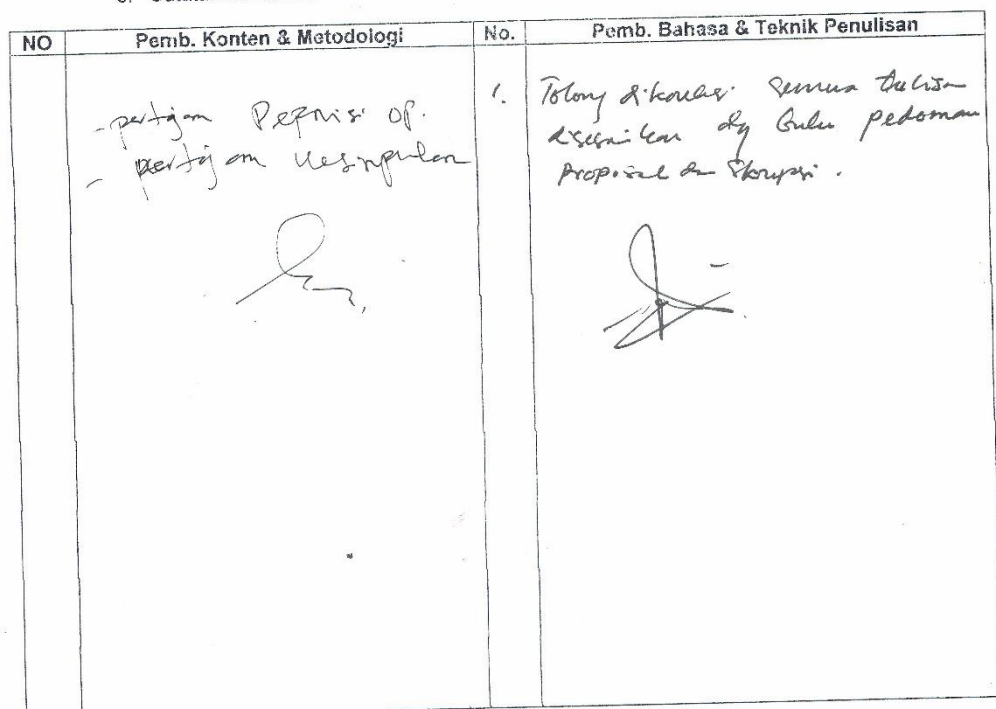 NO
Pemb. Konten & Metodologi
No.
Pemb. Bahasa & Teknik Penulisan
- pertajam Depnisi op.
- pertajam Kesimpulan
1. Tolong dikoreksi semua tulisan
disesuaikan dg buku pedoman
proposal dan skripsi.